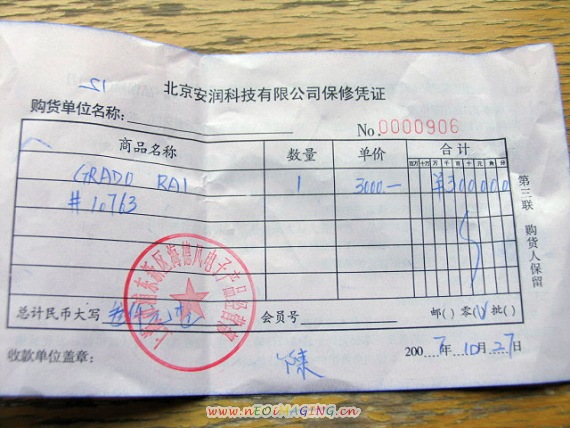 51
北京安润科技有限公司保修凭证
购货单位名称：
No.0000906
商品名称 数量 单价 合计
百万 十万 万 千 百 十 元 角 分
GRADO RA1 1 3000.— ¥300000
#10763
第三联 购货人保留
总计民币大写 叁仟元整 会员号 邮( ) 零(√) 批( )
收款单位盖章： 陈 2007年10月27日
www.nEOiMAGING.cn